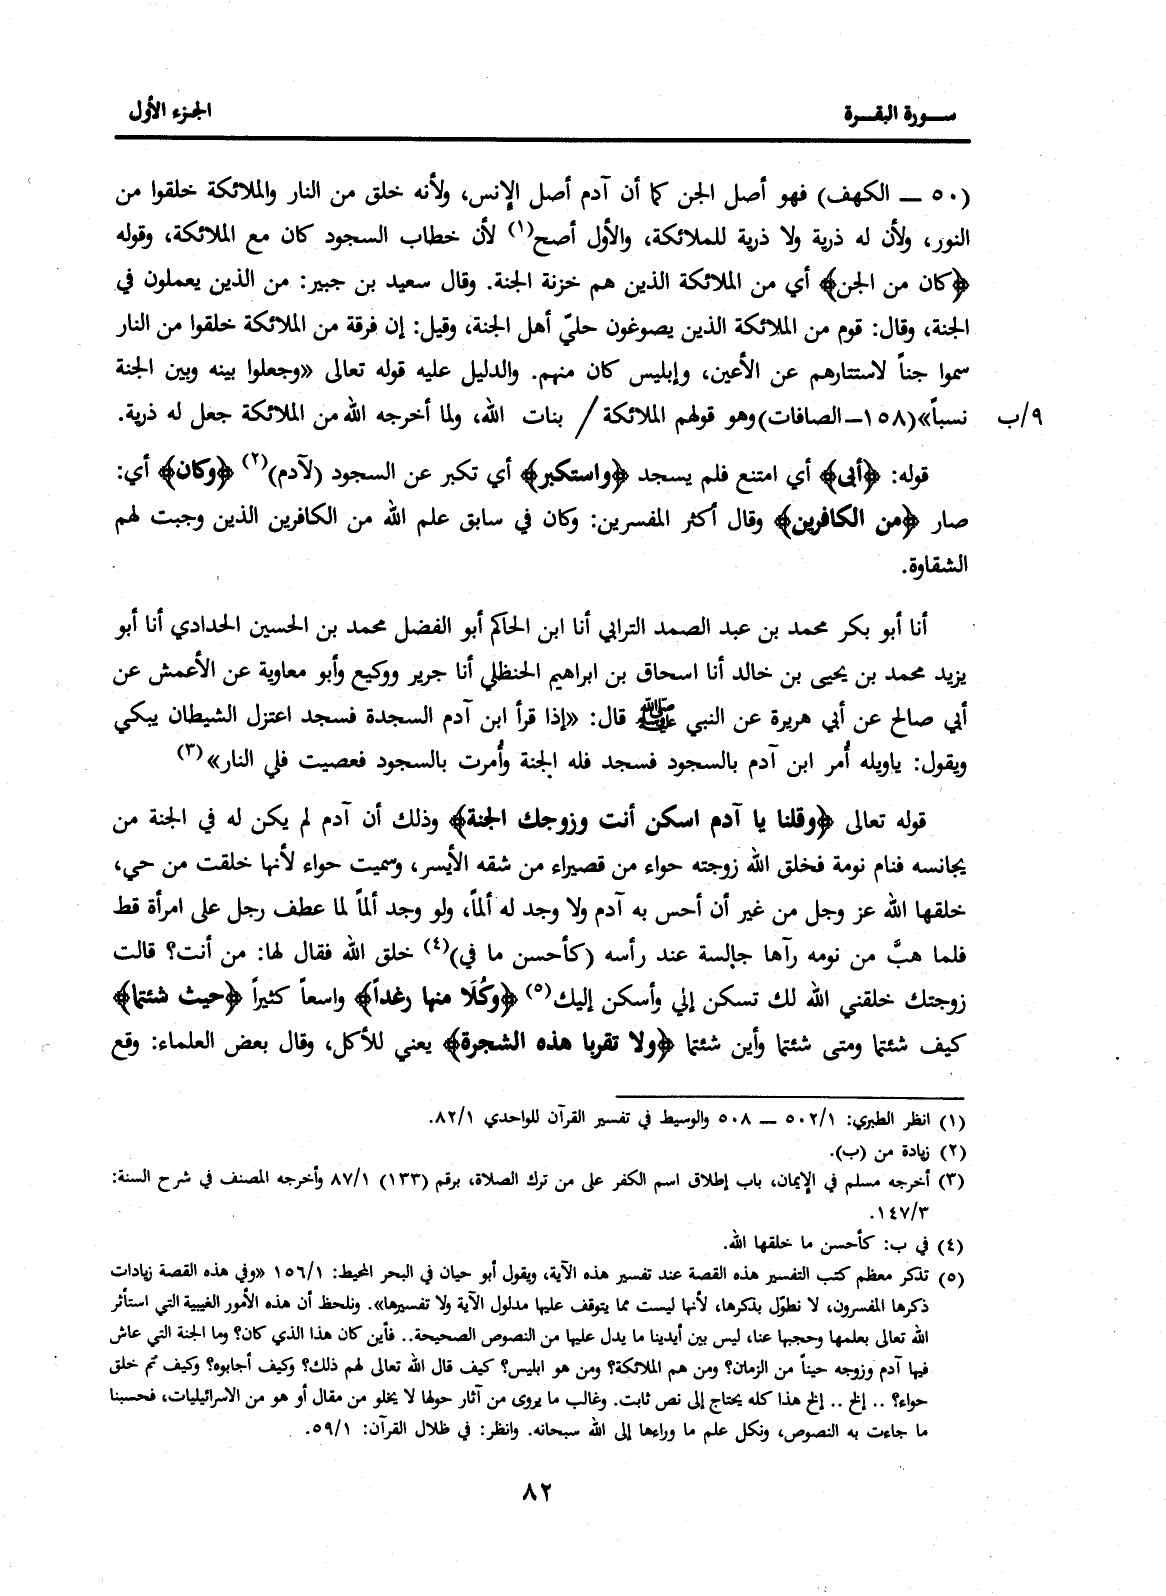 سورة البقرة
الجزء الأول
(٥٠ ــ الكهف) فهو أصل الجن كما أن آدم أصل الإنس، ولأنه خلق من النار والملائكة خلقوا من
النور، ولأن له ذرية ولا ذرية للملائكة، والأول أصح(١) لأن خطاب السجود كان مع الملائكة، وقوله
﴿كان من الجن﴾ أي من الملائكة الذين هم خزنة الجنة. وقال سعيد بن جبير: من الذين يعملون في
الجنة، وقال: قوم من الملائكة الذين يصوغون حليّ أهل الجنة، وقيل: إن فرقة من الملائكة خلقوا من النار
سموا جناً لاستتارهم عن الأعين، وإبليس كان منهم. والدليل عليه قوله تعالى «وجعلوا بينه وبين الجنة
٩/ب نسباً»(١٥٨ــ الصافات)وهو قولهم الملائكة / بنات الله، ولما أخرجه الله من الملائكة جعل له ذرية.
قوله: ﴿أبى﴾ أي امتنع فلم يسجد ﴿واستكبر﴾ أي تكبر عن السجود (لآدم)(٢) ﴿وكان﴾ أي:
صار ﴿من الكافرين﴾ وقال أكثر المفسرين: وكان في سابق علم الله من الكافرين الذين وجبت لهم
الشقاوة.
أنا أبو بكر محمد بن عبد الصمد الترابي أنا ابن الحاكم أبو الفضل محمد بن الحسين الحدادي أنا أبو
يزيد محمد بن يحيى بن خالد أنا اسحاق بن ابراهيم الحنظلي أنا جرير ووكيع وأبو معاوية عن الأعمش عن
أبي صالح عن أبي هريرة عن النبي ﷺ قال: «إذا قرأ ابن آدم السجدة فسجد اعتزل الشيطان يبكي
ويقول: ياويله أُمر ابن آدم بالسجود فسجد فله الجنة وأُمرت بالسجود فعصيت فلي النار»(٣)
قوله تعالى ﴿وقلنا يا آدم اسكن أنت وزوجك الجنة﴾ وذلك أن آدم لم يكن له في الجنة من
يجانسه فنام نومة فخلق الله زوجته حواء من قصيراء من شقه الأيسر، وسميت حواء لأنها خلقت من حي،
خلقها الله عز وجل من غير أن أحس به آدم ولا وجد له ألماً، ولو وجد ألماً لما عطف رجل على امرأة قط
فلما هبَّ من نومه رآها جالسة عند رأسه (كأحسن ما في)(٤) خلق الله فقال لها: من أنت؟ قالت
زوجتك خلقني الله لك تسكن إلي وأسكن إليك(٥) ﴿وكُلَا منها رغداً﴾ واسعاً كثيراً ﴿حيث شئتما﴾
كيف شئتما ومتى شئتما وأين شئتما ﴿ولا تقربا هذه الشجرة﴾ يعني للأكل، وقال بعض العلماء: وقع
(١) انظر الطبري: ٥٠٢/١ ــ ٥٠٨ والوسيط في تفسير القرآن للواحدي ٨٢/١.
(٢) زيادة من (ب).
(٣) أخرجه مسلم في الإيمان، باب إطلاق اسم الكفر على من ترك الصلاة، برقم (١٣٣) ٨٧/١ وأخرجه المصنف في شرح السنة:
١٤٧/٣.
(٤) في ب: كأحسن ما خلقها الله.
(٥) تذكر معظم كتب التفسير هذه القصة عند تفسير هذه الآية، ويقول أبو حيان في البحر المحيط: ١٥٦/١ «وفي هذه القصة زيادات
ذكرها المفسرون، لا نطوّل بذكرها، لأنها ليست مما يتوقف عليها مدلول الآية ولا تفسيرها». ونلحظ أن هذه الأمور الغيبية التي استأثر
الله تعالى بعلمها وحجبها عنا، ليس بين أيدينا ما يدل عليها من النصوص الصحيحة.. فأين كان هذا الذي كان؟ وما الجنة التي عاش
فيها آدم وزوجه حيناً من الزمان؟ ومن هم الملائكة؟ ومن هو ابليس؟ كيف قال الله تعالى لهم ذلك؟ وكيف أجابوه؟ وكيف تم خلق
حواء؟ .. إلخ .. إلخ هذا كله يحتاج إلى نص ثابت. وغالب ما يروى من آثار حولها لا يخلو من مقال أو هو من الاسرائيليات، فحسبنا
ما جاءت به النصوص، ونكل علم ما وراءها إلى الله سبحانه. وانظر: في ظلال القرآن: ٥٩/١.
٨٢